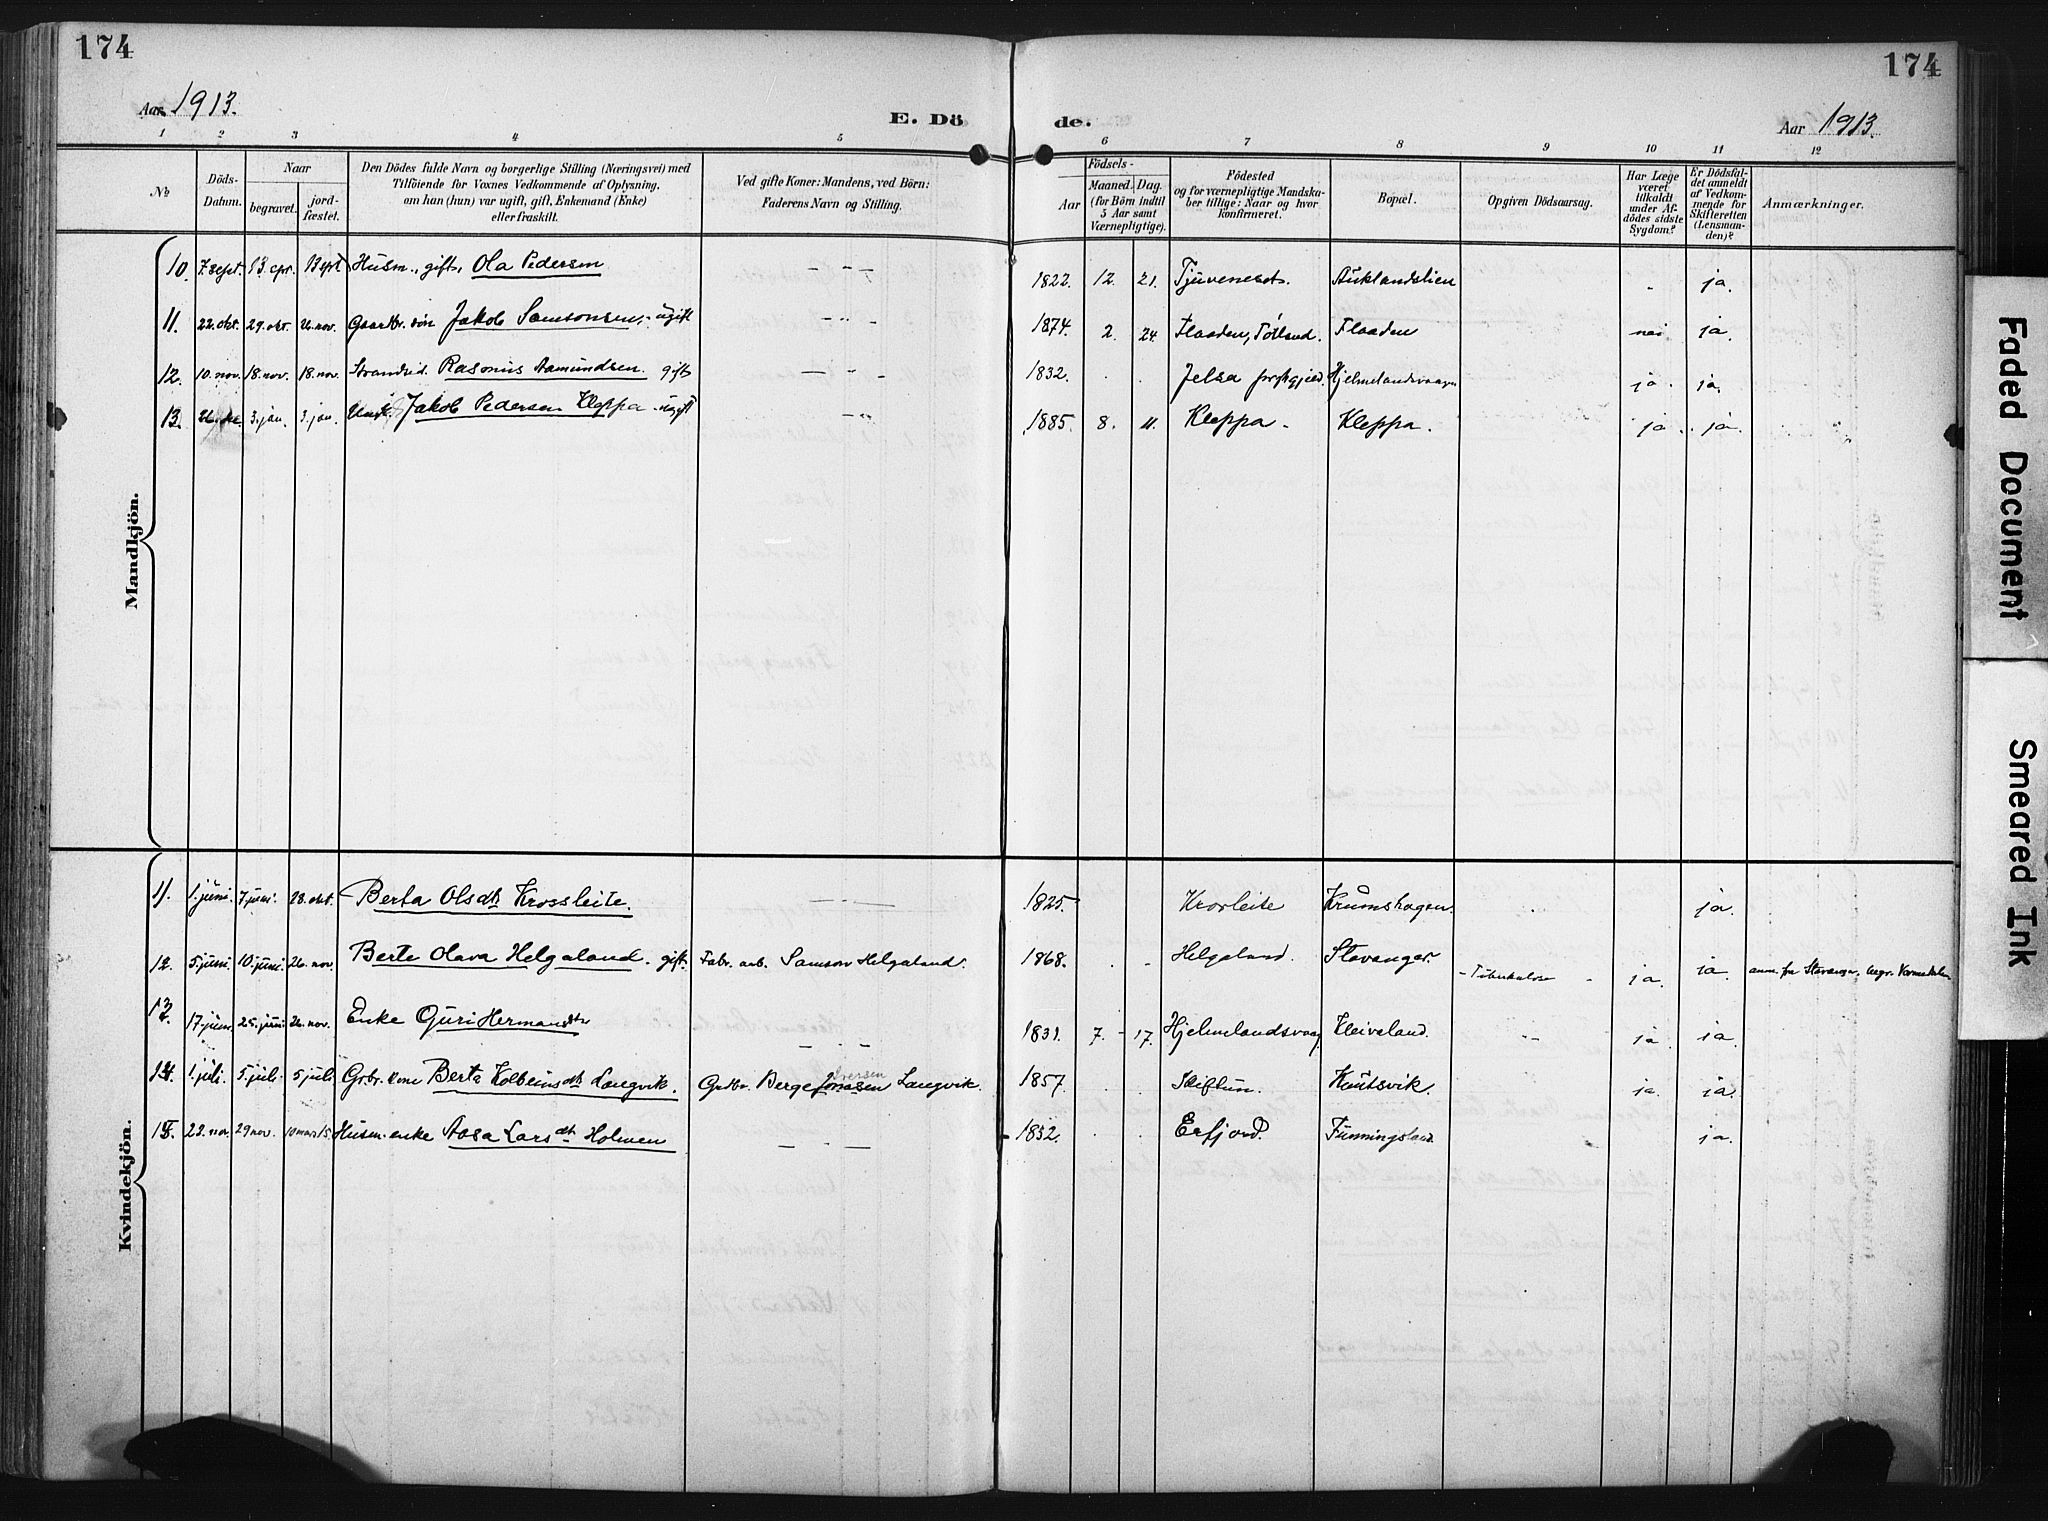 174
174
Aar 1913.
E. Dö
de.
Aar 1913.
1 2 3 4 5 6 7 8 9 10 11 12
No
Döds-
Datum.
Naar
begravet.
jord-
fæstet.
Den Dödes fulde Navn og borgerlige Stilling (Næringsvei) med
Tilföiende for Voxnes Vedkommende af Oplysning,
om han (hun) var ugift, gift, Enkemand (Enke)
eller fraskilt.
Ved gifte Koner: Mandens, ved Börn:
Faderens Navn og Stilling.
Födsels-
Aar
Maaned. Dag.
(for Börn indtil
5 Aar samt
Værnepligtige).
Födested
og for værnepligtige Mandska-
ber tillige: Naar og hvor
konfirmeret.
Bopæl.
Opgiven Dödsaarsag.
Har Læge
været
tilkaldt
under Af-
dödes sidste
Sygdom?
Er Dödsfal-
det anmeldt
af Vedkom-
mende for
Skifteretten
(Lensman-
den)?
Anmærkninger.
Mandkjön.
10. 7. sept. 13. Husm., gift, Ola Pedersen 1822. 12. 21. Auklandslien ja.
11. 22. okt. 29. okt. 26. nov. Gaardbr. sön Jakob Samsonsen, ugift 1874. 2. 24. Flaaden, Flaaden nei ja.
12. 10. nov. 18. nov. 18. nov. Strandsid. Rasmus Aamundsen. gift 1832. Jelsa Hjelmelandsvaagen ja. ja.
13. 3. jan. 3. jan. Jakob Pedersen Kleppa ugift 1885. 8. 11. Kleppa. Kleppa. ja. ja.
Kvindekjön.
11. 1. juni. 7. juni. 28. okt. Berta Olsdtr Krossleite. 1825. Krosleite Krumshagen. ja.
12. 5. juni. 10. juni. 26. nov. Berte Olava Helgaland. gift. Fabr. arb. Samson Helgaland. 1868. Helgaland. Stavanger. Tuberkulose ja. ja. anm. fra Stavanger, begr.
13. 17. juni 25. juni 26. nov. Enke Guri Hermansdtr 1831. 7. 17. Hjelmelandsvaag Kleivaland. ja. ja.
14. 1. juli. 5. juli. 5. juli Grbr. kone Berta Kolbeinsdtr Langvik. Grdbr. Berge Jonasen Iversen Langvik. 1857. Skiftun. Knutsvik. ja. ja.
15. 22. nov. 29 nov. 10 mars 15. Husm. enke Aasa Larsdtr Holmen 1832. Erfjord. Funningsland. ja.
Faded Document
Smeared Ink